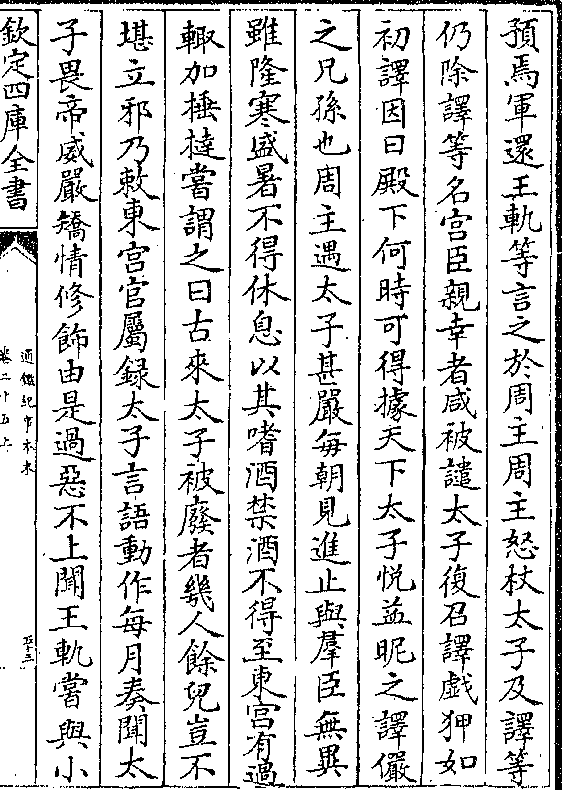 預焉軍還王軌等言之於周主周主怒杖太子及譯等
仍除譯等名宫臣親幸者咸被譴太子復召譯戲狎如
初譯因曰殿下何時可得據天下太子悦益昵之譯儼
之兄孫也周主遇太子甚嚴每朝見進止與羣臣無異
雖隆寒盛暑不得休息以其嗜酒禁酒不得至東宫有過
輙加捶撻嘗謂之曰古來太子被廢者幾人餘兒豈不
堪立邪乃敕東宫官屬録太子言語動作每月奏聞太
子畏帝威嚴矯情修飾由是過惡不上聞王軌嘗與小
欽定四庫全書
通鑑紀事本末
卷二十五上
五十三